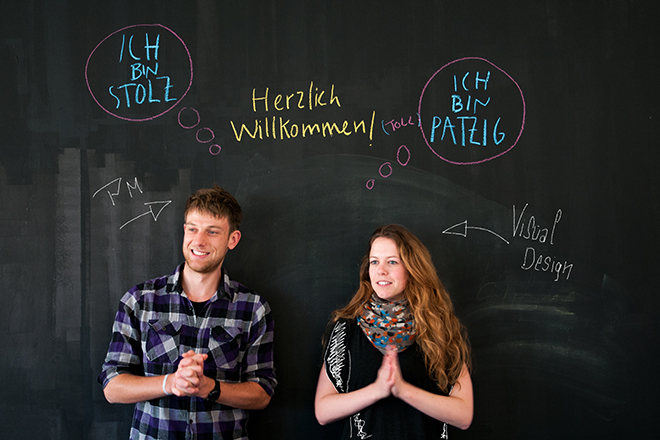 ICH
BIN
STOLZ
Herzlich
Willkommen!
(TOLL)
ICH
BIN
PATZIG
PM
Visual
Design